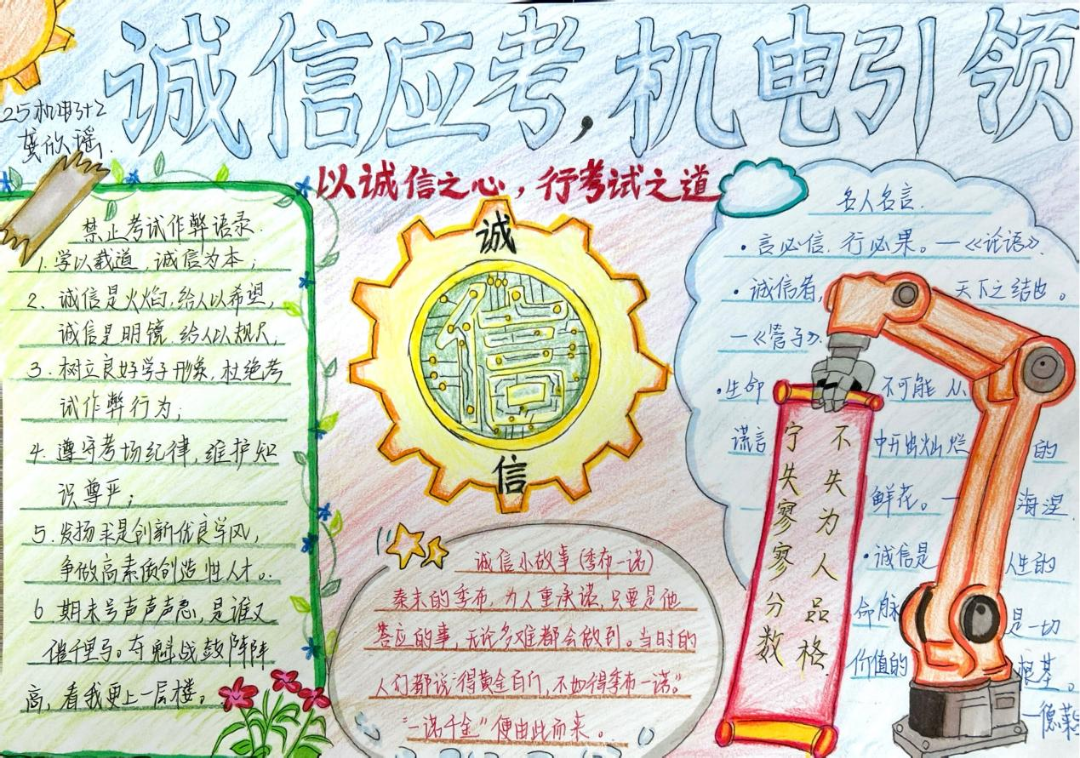 诚信应考,机电引领
25机电3+2
龚欣瑶
以诚信之心，行考试之道
禁止考试作弊语录.
1. 学以载道，诚信为本；
2. 诚信是火焰，给人以希望，
诚信是明镜，给人以规尺，
3. 树立良好学子形象，杜绝考
试作弊行为；
4. 遵守考场纪律，维护知
识尊严；
5. 发扬求是创新优良学风，
争做高素质创造性人才。
6 期末号声声声急，是谁又
催千里马。夺魁战鼓阵阵
高，看我更上一层楼。
诚
信
信
诚信小故事(季布一诺)
秦末的季布，为人重承诺，只要是他
答应的事，无论多难都会做到。当时的
人们都说“得黄金百斤，不如得季布一诺。”
“一诺千金”便由此而来。
名人名言.
·言必信，行必果。—《论语》
·诚信者，天下之结也。
—《管子》
·生命 不可能从
谎言 中开出灿烂的
鲜花。— 海涅
·诚信是 人生的
命脉 是一切
价值的 根基。
—德莱
不失为人品格
宁失寥寥分数